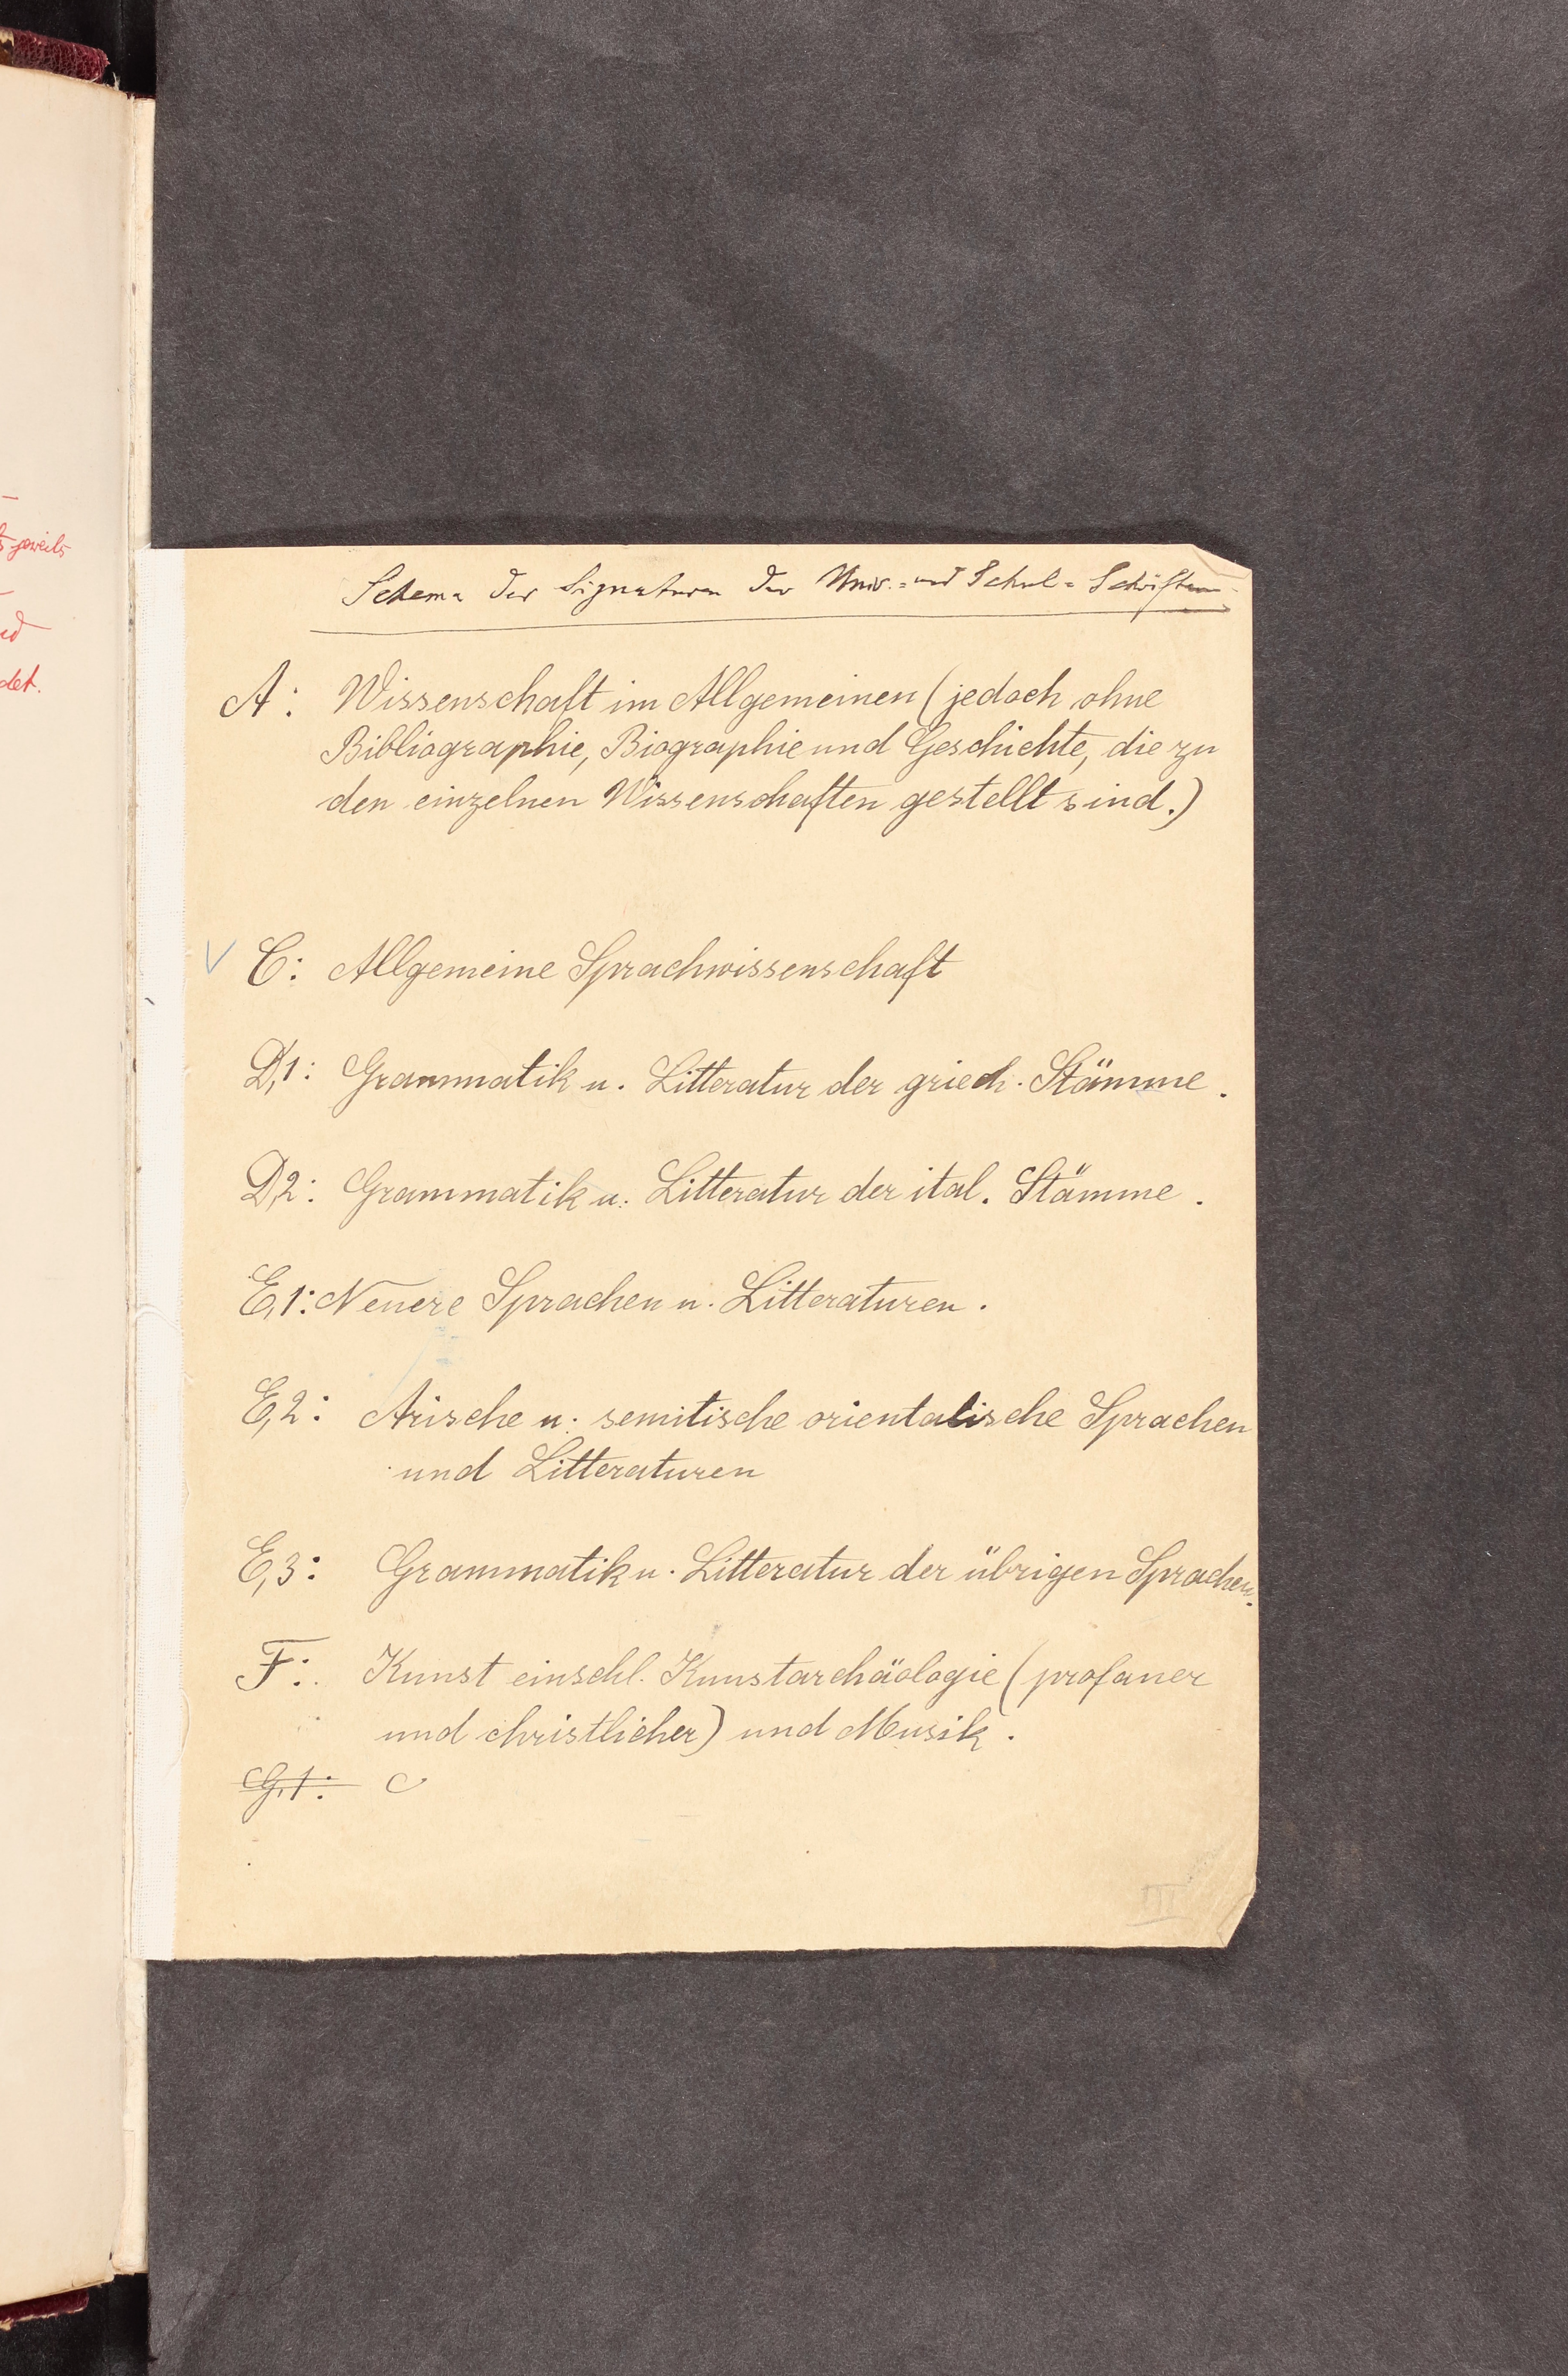 jeweils
det.
Schema der Signaturen der Univ.= und Schul=Schriften
A: Wissenschaft im Allgemeinen (jedoch ohne
Bibliographie, Biographie und Geschichte, die zu
den einzelnen Wissenschaften gestellt sind.)
C: Allgemeine Sprachwissenschaft
D,1: Grammatik u. Litteratur der griech. Stämme.
D,2: Grammatik u. Litteratur der ital. Stämme.
E,1: Neuere Sprachen u. Litteraturen.
E,2: Arische u. semitische orientalische Sprachen
und Litteraturen
E,3: Grammatik u. Litteratur der übrigen Sprachen.
F: Kunst einschl. Kunstarchäologie (profaner
und christlicher) und Musik.
G,1: C
III